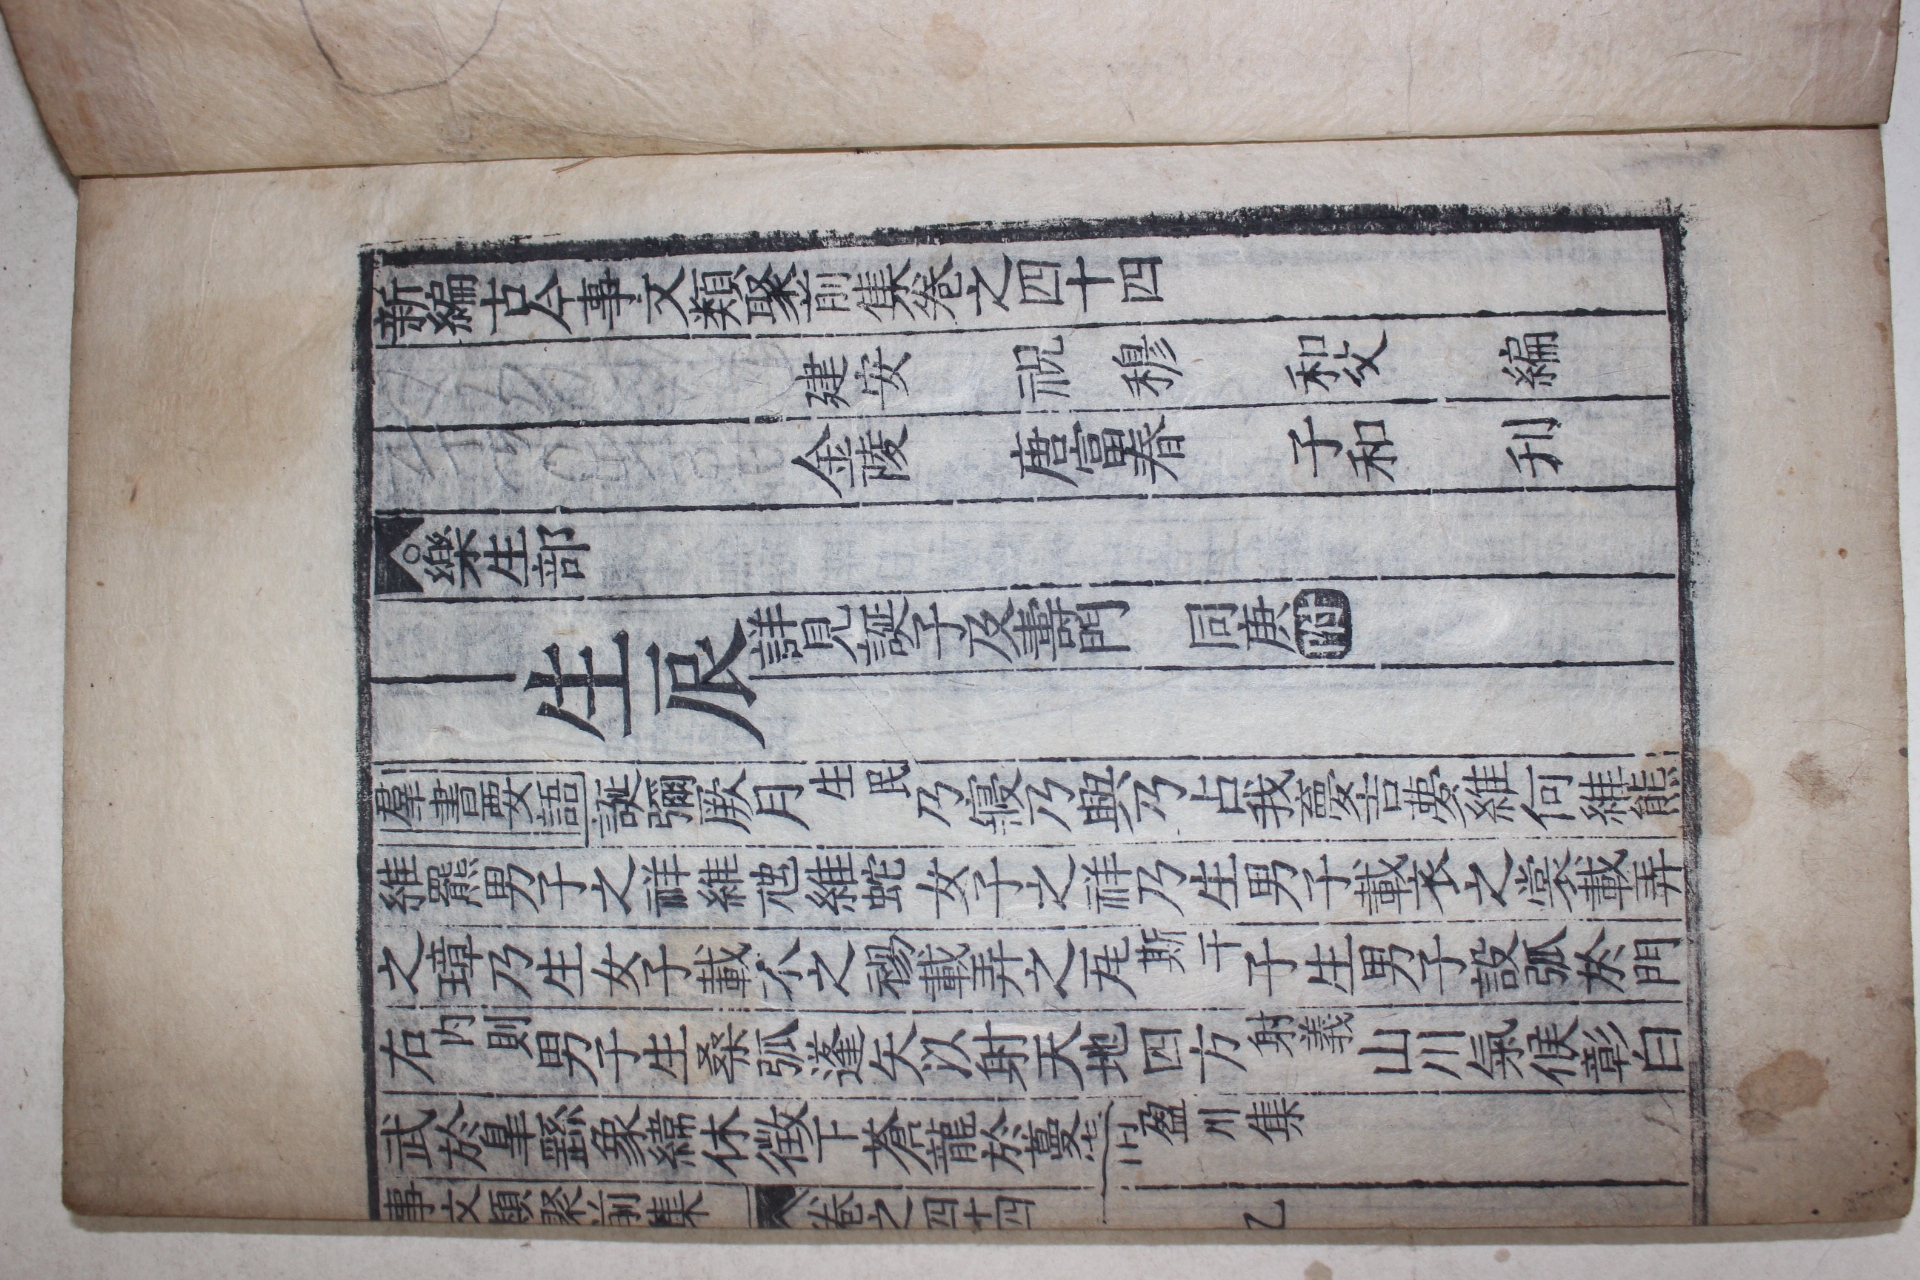 新編古今事文類聚前集卷之四十四
建安 祝穆 和父 編
金陵 唐富春 子和 刋
樂生部
生辰 詳見誕子及壽門 同庚附
羣書要語 誕彌厥月生民乃寢乃興乃占我夢吉夢維何維熊
維羆男子之祥維虺維蛇女子之祥乃生男子載衣之裳載弄
之璋乃生女子載衣之裼載弄之瓦斯干子生男子設弧於門
右內則男子生桑弧蓬矢以射天地四方射義山川氣候彰白
武於皐繇象緯休徵下蒼龍於蔓 盈川集
事文類聚前集 卷之四十四 乙